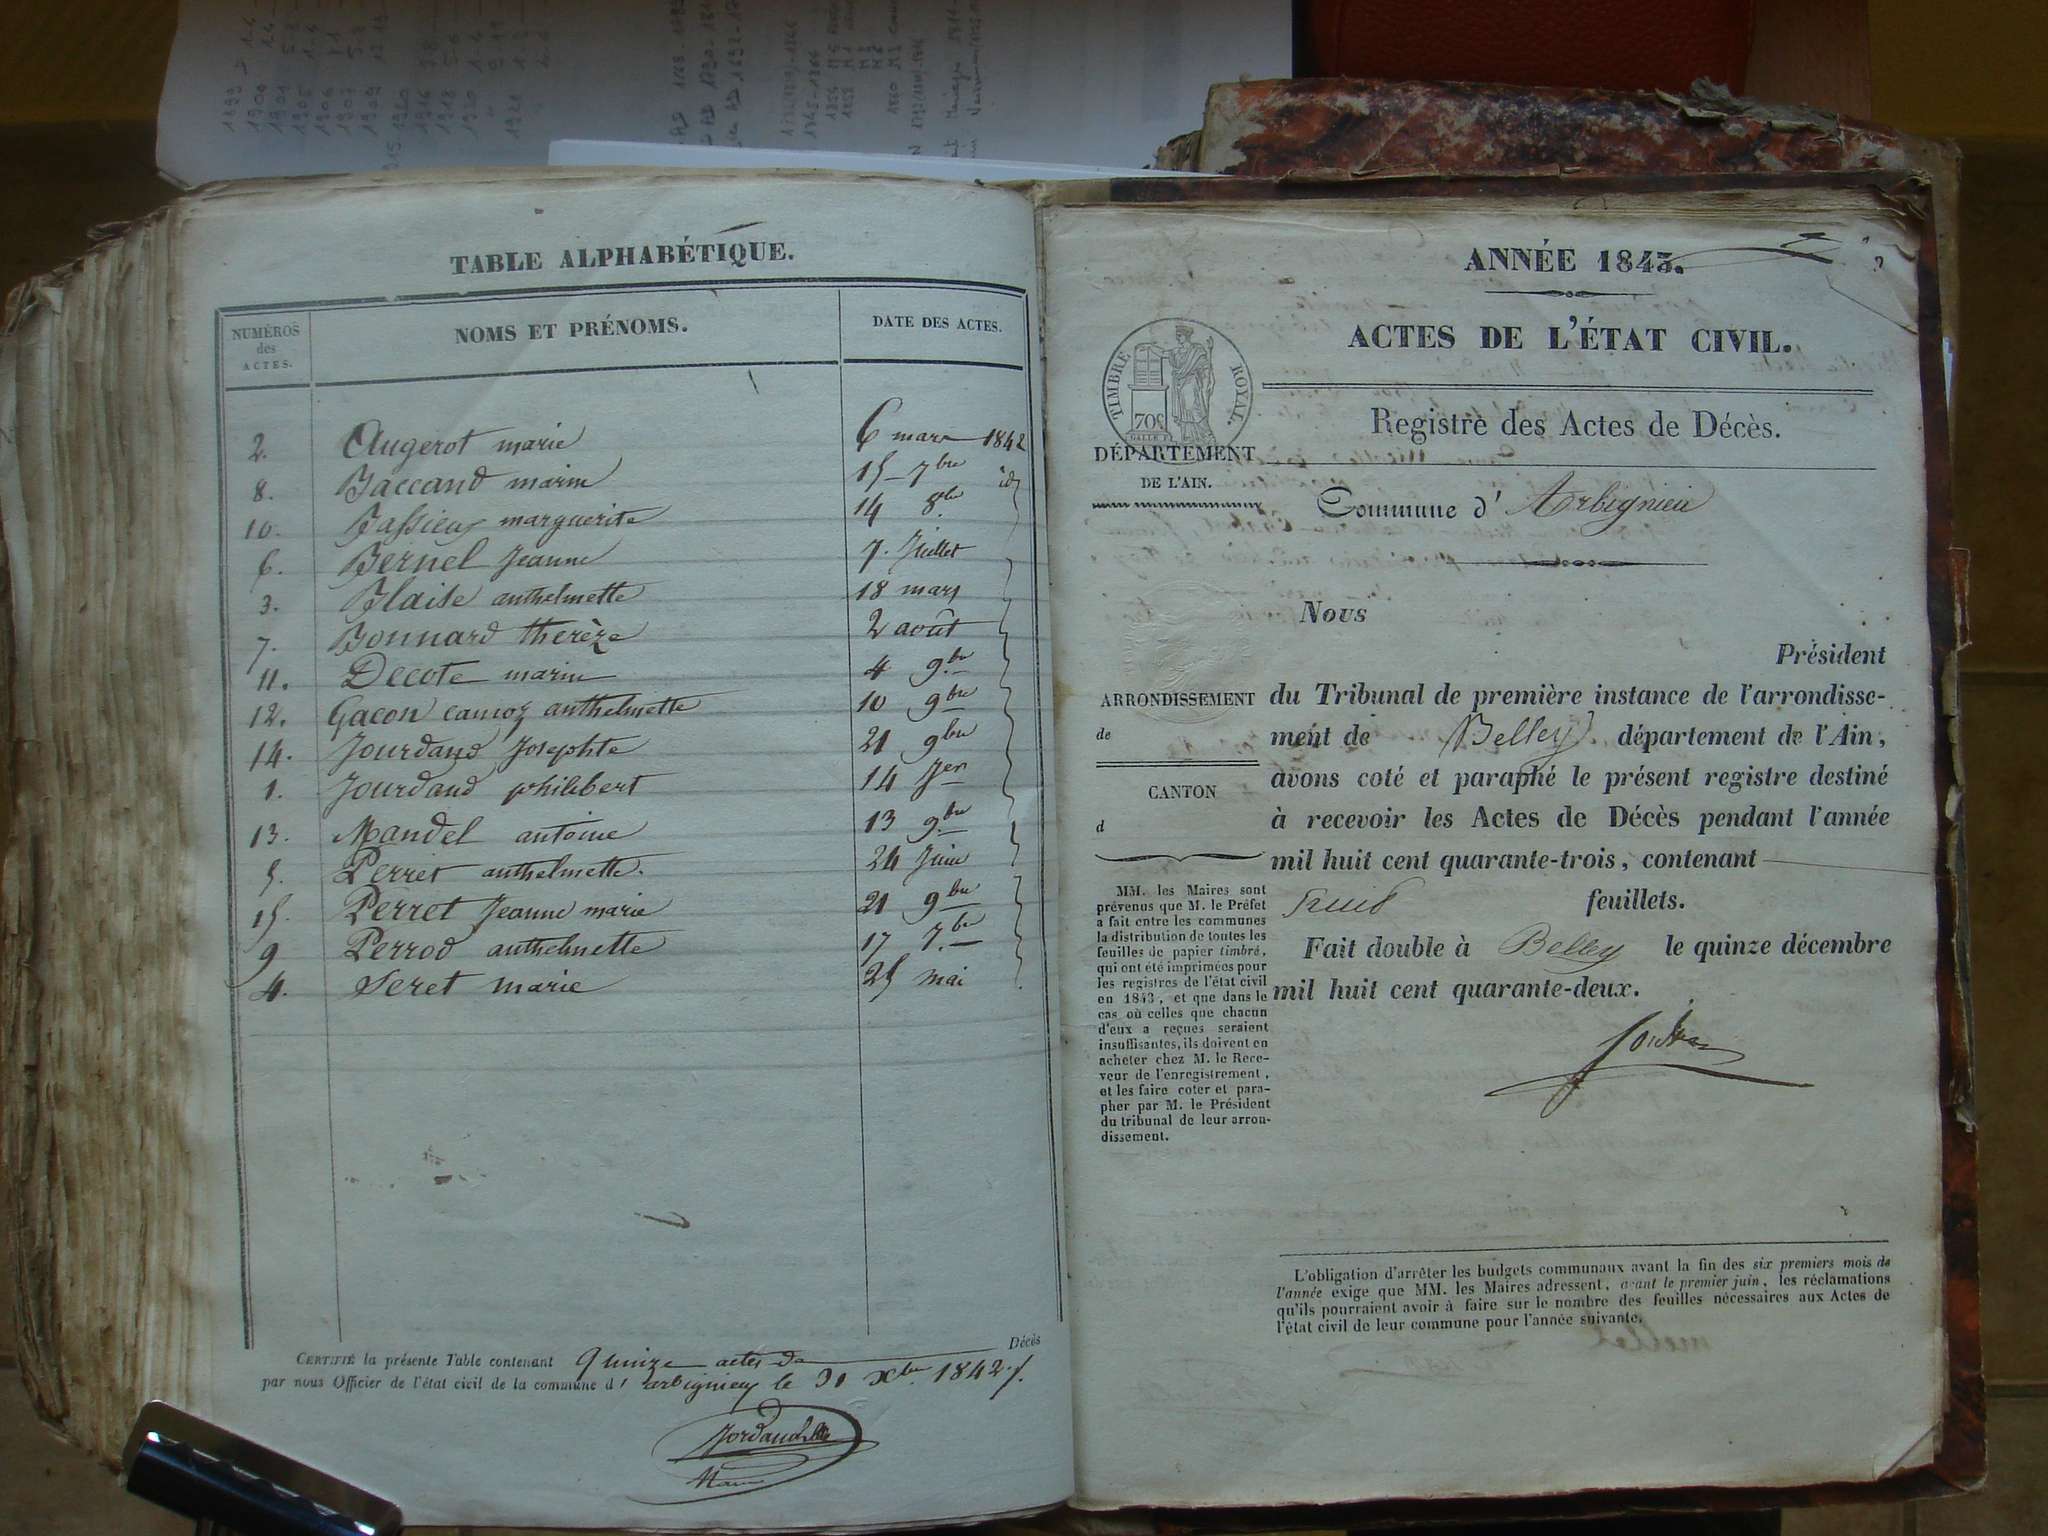 TABLE ALPHABÉTIQUE.
NUMÉROS des ACTES.
NOMS ET PRÉNOMS.
DATE DES ACTES.
2. Augerot marie 6 mars 1842
8. Baccand marin 15 7bre id
10. Bassieux marguerite 14 8bre
6. Bernel Jeanne 7. Juillet
3. Blaise anthelmette 18 mars
7. Bonnard therèze 2 août
11. Decote marin 4 9bre
12. Gacon camoz anthelmette 10 9bre
14. Jourdand Josephte 21 9bre
1. Jourdand philibert 14 Jer
13. Mandel antoine 13 9bre
5. Perret anthelmette. 24 Juin
15. Perret Jeanne marie 21 9bre
9 Perrod anthelmette 17 7bre
4. Seret marie 25 mai
CERTIFIÉ la présente Table contenant quinze actes de Décès
par nous Officier de l'état civil de la commune d' arbignieu le 31 Xbre 1842.
ANNÉE 1843.
ACTES DE L'ÉTAT CIVIL.
TIMBRE ROYAL.
70c
Registre des Actes de Décès.
DÉPARTEMENT
DE L'AIN.
Commune d' Arbignieu
Nous
Président
ARRONDISSEMENT
de
CANTON
d
du Tribunal de première instance de l'arrondisse-
ment de Belley département de l'Ain,
avons coté et paraphé le présent registre destiné
à recevoir les Actes de Décès pendant l'année
mil huit cent quarante-trois, contenant
huit feuillets.
Fait double à Belley le quinze décembre
mil huit cent quarante-deux.
MM. les Maires sont
prévenus que M. le Préfet
a fait entre les communes
la distribution de toutes les
feuilles de papier timbré,
qui ont été imprimées pour
les registres de l'état civil
en 1843, et que dans le
cas où celles que chacun
d'eux a reçues seraient
insuffisantes, ils doivent en
acheter chez M. le Rece-
veur de l'enregistrement,
et les faire coter et para-
pher par M. le Président
du tribunal de leur arron-
dissement.
L'obligation d'arrêter les budgets communaux avant la fin des six premiers mois de
l'année exige que MM. les Maires adressent, avant le premier juin, les réclamations
qu'ils pourraient avoir à faire sur le nombre des feuilles nécessaires aux Actes de
l'état civil de leur commune pour l'année suivante.